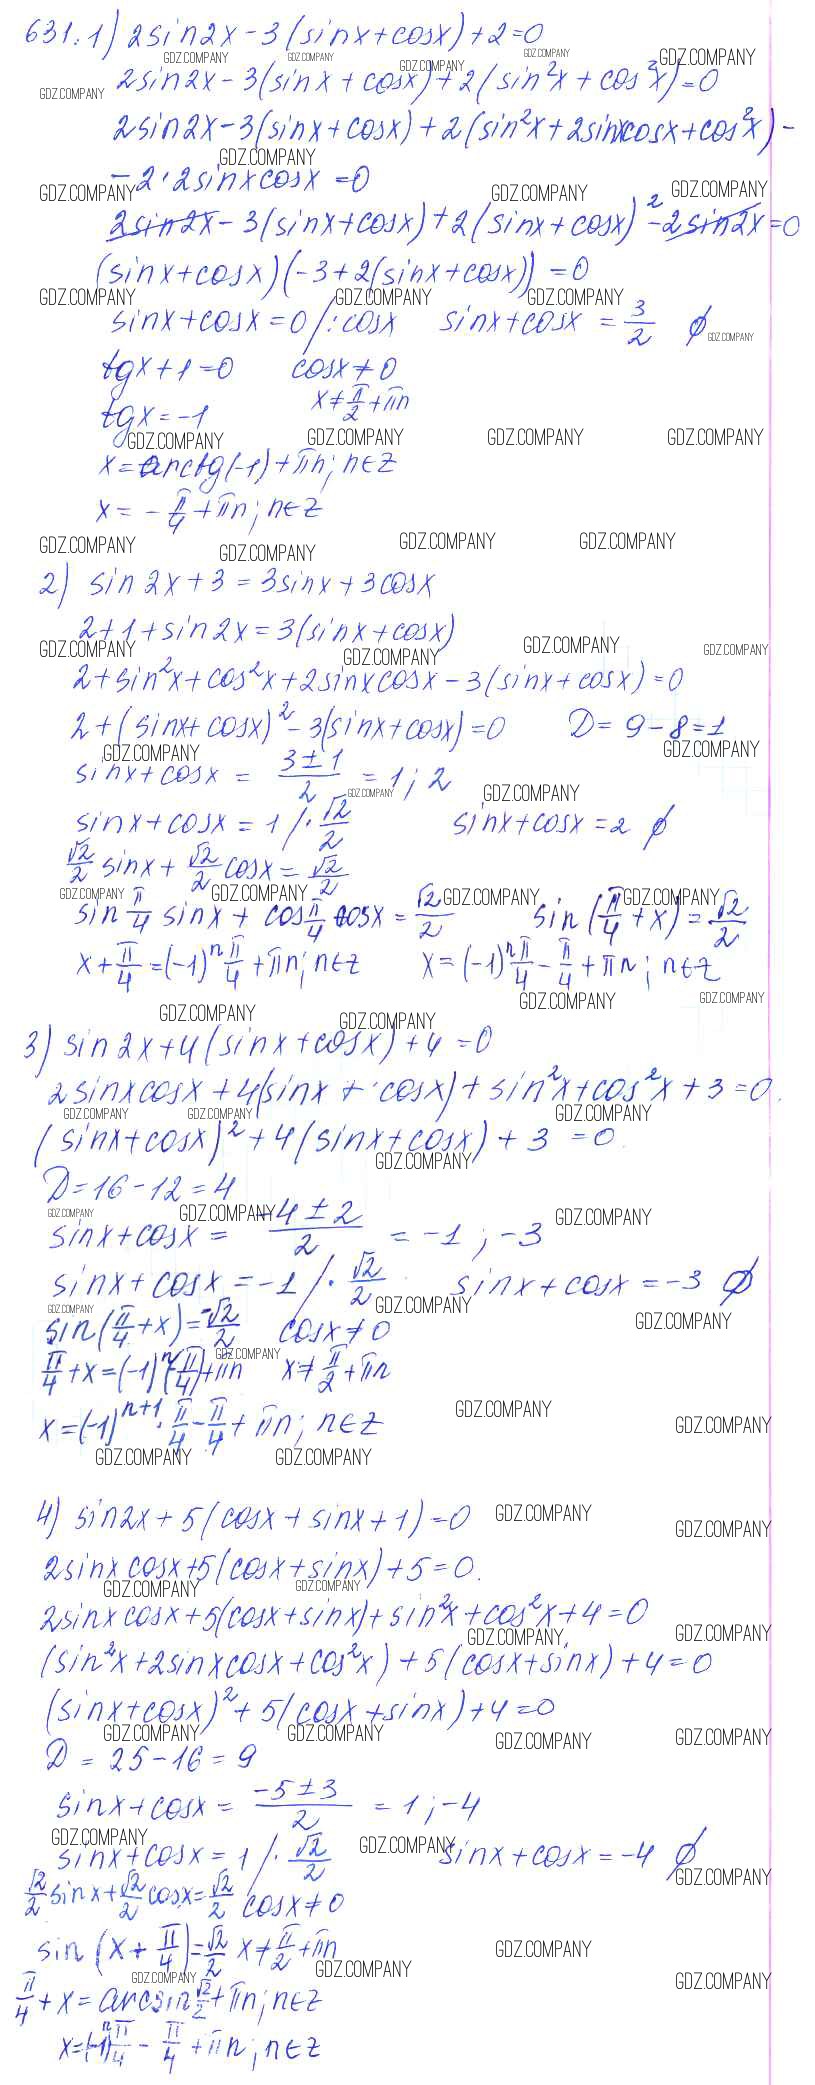 631. 1) 2sin2x - 3(sinx+cosx)+2=0
2sin2x - 3(sinx + cosx) + 2(sin²x + cos²x) = 0
2sin2x - 3(sinx + cosx) + 2(sin²x + 2sinxcosx + cos²x) -
- 2·2sinxcosx = 0
2sin2x - 3(sinx+cosx) + 2(sinx + cosx)² - 2sin2x = 0
(sinx+cosx)(-3+2(sinx+cosx)) = 0
sinx+cosx = 0 /:cosx sinx+cosx = 3/2 ∅
tgx + 1 = 0 cosx ≠ 0
tgx = -1 x ≠ π/2 + πn
x = arctg(-1) + πn; n∈Z
x = - π/4 + πn; n∈Z
2) sin2x + 3 = 3sinx + 3cosx
2+1+sin2x = 3(sinx+cosx)
2+sin²x+cos²x+2sinxcosx - 3(sinx+cosx) = 0
2+(sinx+cosx)² - 3(sinx+cosx) = 0 D = 9-8 = 1
sinx+cosx = (3±1)/2 = 1; 2
sinx+cosx = 1 /· √2/2 sinx+cosx = 2 ∅
√2/2 sinx + √2/2 cosx = √2/2
sin π/4 sinx + cos π/4 cosx = √2/2 sin(π/4 + x) = √2/2
x + π/4 = (-1)ⁿ π/4 + πn; n∈Z x = (-1)ⁿ π/4 - π/4 + πn; n∈Z
3) sin2x+4(sinx+cosx)+4 = 0
2sinxcosx + 4(sinx + cosx) + sin²x + cos²x + 3 = 0.
(sinx+cosx)² + 4(sinx+cosx) + 3 = 0.
D = 16-12 = 4
sinx+cosx = (-4±2)/2 = -1; -3
sinx+cosx = -1 /· √2/2 sinx+cosx = -3 ∅
sin(π/4 + x) = -√2/2 cosx ≠ 0
π/4 + x = (-1)ⁿ(-π/4) + πn x ≠ π/2 + πn
x = (-1)ⁿ⁺¹ · π/4 - π/4 + πn; n∈Z
4) sin2x + 5(cosx + sinx + 1) = 0
2sinxcosx+5(cosx+sinx)+5 = 0.
2sinxcosx+5(cosx+sinx)+sin²x+cos²x+4 = 0
(sin²x+2sinxcosx+cos²x) + 5(cosx+sinx) + 4 = 0
(sinx+cosx)² + 5(cosx+sinx)+4 = 0
D = 25-16 = 9
sinx+cosx = (-5±3)/2 = 1; -4
sinx+cosx = 1 /· √2/2 sinx+cosx = -4 ∅
√2/2 sinx + √2/2 cosx = √2/2 cosx ≠ 0
sin(x + π/4) = √2/2 x ≠ π/2 + πn
π/4 + x = arcsin √2/2 + πn; n∈Z
x = (-1)ⁿ π/4 - π/4 + πn; n∈Z
GDZ.COMPANY